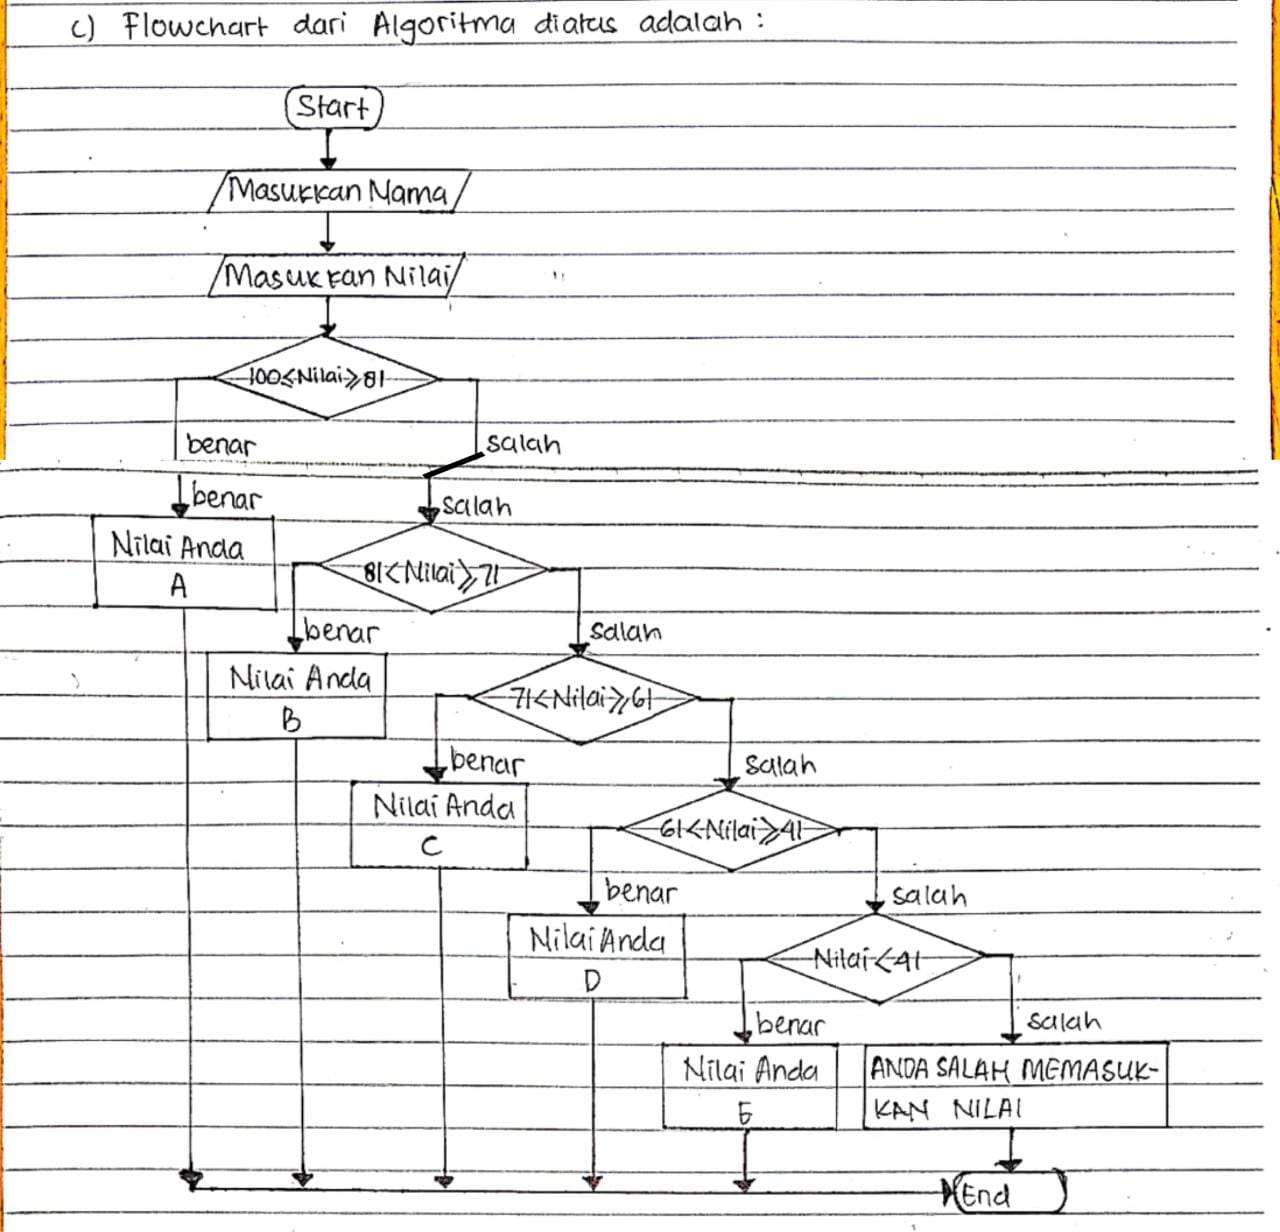 c) Flowchart dari Algoritma diatas adalah :
Start
Masukkan Nama
Masukkan Nilai
100≤Nilai≥81
benar
salah
benar
salah
Nilai Anda
A
81<Nilai≥71
benar
salah
Nilai Anda
B
71<Nilai≥61
benar
salah
Nilai Anda
C
61<Nilai≥41
benar
salah
Nilai Anda
D
Nilai<41
benar
salah
Nilai Anda
E
ANDA SALAH MEMASUK-
KAN NILAI
End